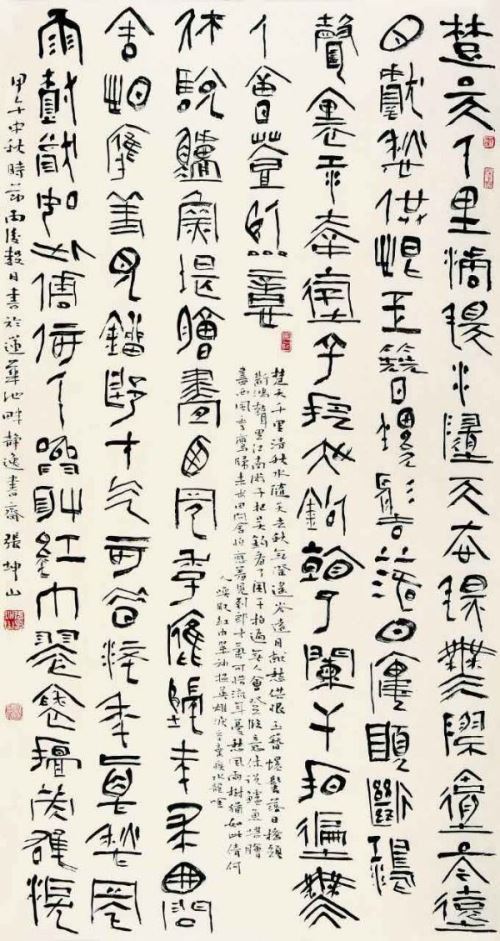 楚天千里清秋水隨天去秋無際遙岑遠
目獻愁供恨玉簪螺髻落日樓頭斷鴻
聲裏江南游子把吳鉤看了闌干拍遍無
人會登臨意
楚天千里清秋水隨天去秋無際遙岑遠目獻愁供恨玉簪螺髻落日樓頭
斷鴻聲里江南游子把吳鉤看了闌干拍遍無人會登臨意休說鱸魚堪膾
盡西風季鷹歸未求田問舍怕應羞見劉郎才氣可惜流年憂愁風雨樹猶如此倩何
人喚取紅巾翠袖揾英雄淚辛棄疾水龍吟
休說鱸魚堪膾盡西風季鷹歸未求田問
舍怕應羞見劉郎才氣可惜流年憂愁風
雨樹猶如此倩何人喚取紅巾翠袖揾英雄淚
甲午中秋時節雨後穀日書於蓮華池畔靜逸書齋張坤山